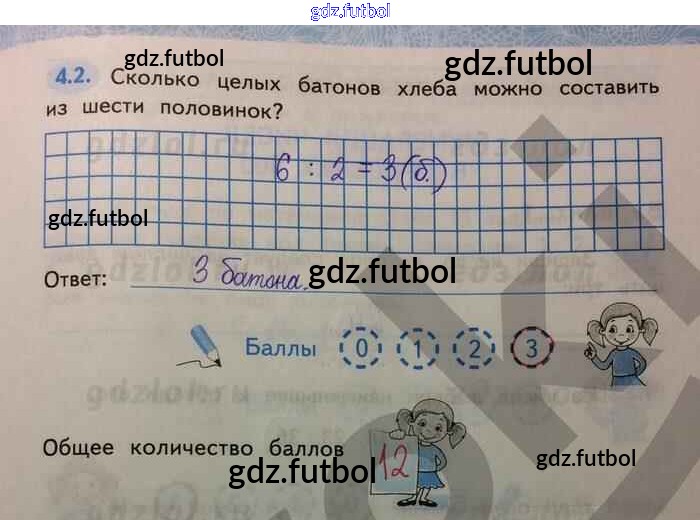 gdz.futbol
gdz.futbol
gdz.futbol
4.2. Сколько целых батонов хлеба можно составить
из шести половинок?
6 : 2 = 3 (б.)
gdz.futbol
Ответ: 3 батона.
gdz.futbol
Баллы 0 1 2 3
Общее количество баллов 12
gdz.futbol
gdz.futbol